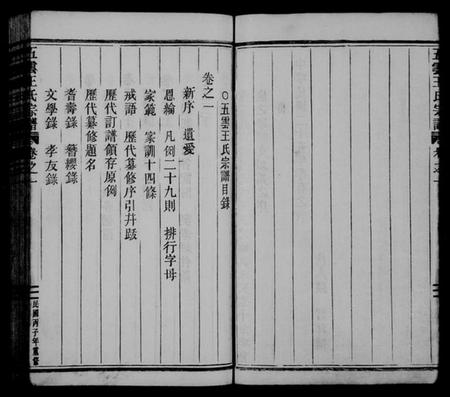 五雲王氏宗譜
卷之一
○五雲王氏宗譜目錄
卷之一
新序 遺愛
恩綸 凡例二十九則 排行字母
家範 家訓十四條
戒語 歷代纂修序引幷跋
歷代訂譜領存原例
歷代纂修題名
耆壽錄 簪纓錄
文學錄 孝友錄
五雲王氏宗譜
卷之一
民國丙子年重修